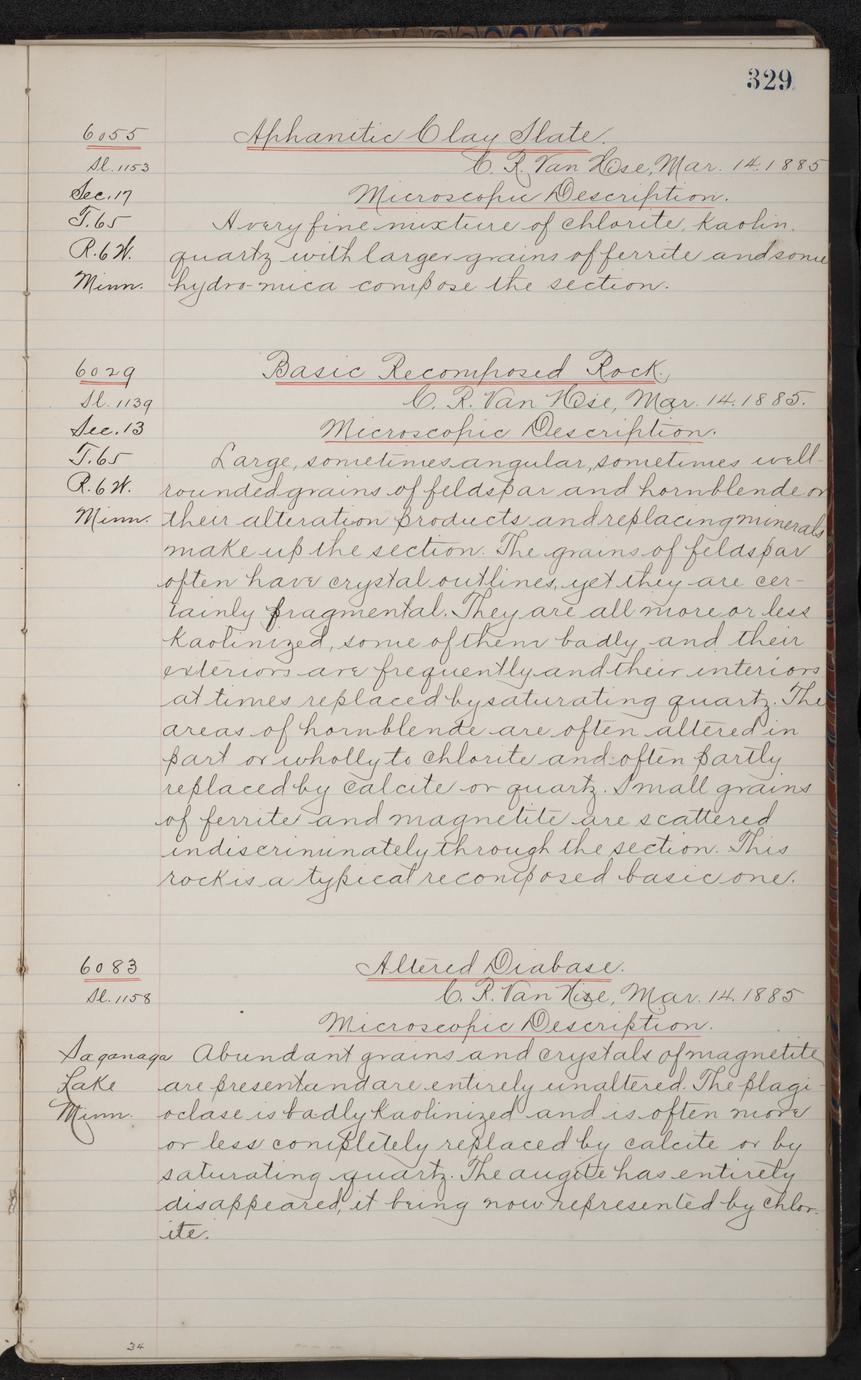 329
6055 Aphanitic Clay Slate.
Sl. 1153 C. R. Van Hise, Mar. 14. 1885
Sec. 17 Microscopic Description.
T. 65 A very fine mixture of chlorite, kaolin,
R. 6 W. quartz with larger grains of ferrite and some
Minn. hydro-mica compose the section.
6029 Basic Recomposed Rock.
Sl. 1139 C. R. Van Hise, Mar. 14. 1885.
Sec. 13 Microscopic Description.
T. 65 Large, sometimes angular, sometimes well-
R. 6 W. rounded grains of feldspar and hornblende or
Minn. their alteration products and replacing minerals
make up the section. The grains of feldspar
often have crystal outlines, yet they are cer-
tainly fragmental. They are all more or less
kaolinized, some of them badly and their
exteriors are frequently and their interiors
at times replaced by saturating quartz. The
areas of hornblende are often altered in
part or wholly to chlorite and often partly
replaced by calcite or quartz. Small grains
of ferrite and magnetite are scattered
indiscriminately through the section. This
rock is a typical recomposed basic one.
6083 Altered Diabase.
Sl. 1158 C. R. Van Hise, Mar. 14. 1885
Microscopic Description.
Saganaga Abundant grains and crystals of magnetite
Lake are present and are entirely unaltered. The plagi-
Minn. oclase is badly kaolinized and is often more
or less completely replaced by calcite or by
saturating quartz. The augite has entirely
disappeared, it being now represented by chlor-
ite.
34